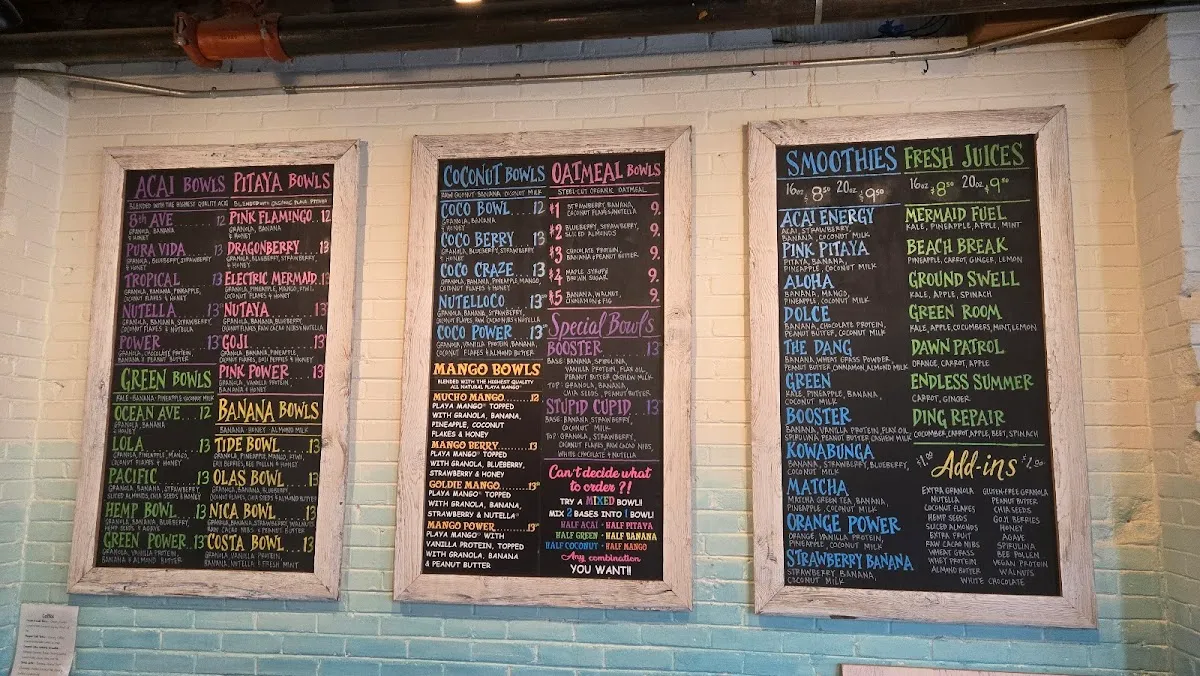 ACAI BOWLS
BLENDED WITH THE HIGHEST QUALITY ACAI
8th AVE 12
GRANOLA, BANANA
& HONEY
PURA VIDA 13
GRANOLA, BLUEBERRY, STRAWBERRY
& HONEY
TROPICAL 13
GRANOLA, BANANA, PINEAPPLE,
COCONUT FLAKES & HONEY
NUTELLA 13
GRANOLA, BANANA, STRAWBERRY,
COCONUT FLAKES & NUTELLA
POWER 13
GRANOLA, CHOCOLATE PROTEIN,
BANANA & PEANUT BUTTER
GREEN BOWLS
KALE · BANANA · PINEAPPLE · COCONUT MILK
OCEAN AVE 12
GRANOLA, BANANA
& HONEY
LOLA 13
GRANOLA, PINEAPPLE, MANGO,
COCONUT FLAKES & HONEY
PACIFIC 13
GRANOLA, BANANA, STRAWBERRY,
SLICED ALMONDS, CHIA SEEDS & HONEY
HEMP BOWL 13
GRANOLA, BANANA, BLUEBERRY,
HEMP SEEDS & AGAVE
GREEN POWER 13
GRANOLA, VANILLA PROTEIN,
BANANA & ALMOND BUTTER
PITAYA BOWLS
BLENDED WITH ORGANIC PLAYA PITAYA
PINK FLAMINGO 12
GRANOLA, BANANA
& HONEY
DRAGONBERRY 13
GRANOLA, BLUEBERRY, STRAWBERRY
& HONEY
ELECTRIC MERMAID 13
GRANOLA, PINEAPPLE, MANGO, KIWI,
COCONUT FLAKES & HONEY
NUTAYA 13
GRANOLA, BANANA, BLUEBERRY,
COCONUT FLAKES, RAW CACAO NIBS & NUTELLA
GOJI 13
GRANOLA, BANANA, PINEAPPLE,
COCONUT FLAKES, GOJI BERRIES & HONEY
PINK POWER 13
GRANOLA, VANILLA PROTEIN,
BANANA & HONEY
BANANA BOWLS
BANANA · HONEY · ALMOND MILK
TIDE BOWL 13
GRANOLA, BANANA, PINEAPPLE, KIWI,
GOJI BERRIES, BEE POLLEN & HONEY
OLAS BOWL 13
GRANOLA, BANANA, BLUEBERRY,
COCONUT FLAKES, CHIA SEEDS & ALMOND BUTTER
NICA BOWL 13
GRANOLA, BANANA, STRAWBERRY, WALNUTS,
RAW CACAO NIBS & PEANUT BUTTER
COSTA BOWL 13
GRANOLA, VANILLA PROTEIN,
BANANA, NUTELLA & FRESH MINT
COCONUT BOWLS
RAW COCONUT · BANANA · COCONUT MILK
COCO BOWL 12
GRANOLA, BANANA
& HONEY
COCO BERRY 13
GRANOLA, BLUEBERRY, STRAWBERRY
& HONEY
COCO CRAZE 13
GRANOLA, BANANA, PINEAPPLE, MANGO,
COCONUT FLAKES & HONEY
NUTELLOCO 13
GRANOLA, BANANA, STRAWBERRY,
COCONUT FLAKES & NUTELLA
COCO POWER 13
GRANOLA, VANILLA PROTEIN, BANANA,
COCONUT FLAKES & ALMOND BUTTER
MANGO BOWLS
BLENDED WITH THE HIGHEST QUALITY
ALL NATURAL PLAYA MANGO®
MUCHO MANGO 12
PLAYA MANGO® TOPPED
WITH GRANOLA, BANANA,
PINEAPPLE, COCONUT
FLAKES & HONEY
MANGO BERRY 13
PLAYA MANGO® TOPPED
WITH GRANOLA, BLUEBERRY,
STRAWBERRY & HONEY
GOLDIE MANGO 13
PLAYA MANGO® TOPPED
WITH GRANOLA, BANANA,
STRAWBERRY & NUTELLA®
MANGO POWER 13
PLAYA MANGO® WITH
VANILLA PROTEIN, TOPPED
WITH GRANOLA, BANANA
& PEANUT BUTTER
OATMEAL BOWLS
STEEL-CUT ORGANIC OATMEAL
#1 STRAWBERRY, BANANA, 9.
COCONUT FLAKES & NUTELLA
#2 BLUEBERRY, STRAWBERRY, 9.
SLICED ALMONDS
#3 CHOCOLATE PROTEIN, 9.
BANANA & PEANUT BUTTER
#4 MAPLE SYRUP & 9.
BROWN SUGAR
#5 BANANA, WALNUT, 9.
CINNAMON & FIG
Special Bowls
BOOSTER 13
BASE: BANANA, SPIRULINA,
VANILLA PROTEIN, FLAX OIL
PEANUT BUTTER, CASHEW MILK
TOP: GRANOLA, BANANA,
CHIA SEEDS, PEANUT BUTTER
STUPID CUPID 13
BASE: BANANA STRAWBERRY,
COCONUT MILK
TOP: GRANOLA, STRAWBERRY,
COCONUT FLAKES, RAW CACAO NIBS,
WHITE CHOCOLATE & NUTELLA
Can't decide what
to order?!
TRY A MIXED BOWL!!
MIX 2 BASES INTO 1 BOWL!
HALF ACAI · HALF PITAYA
HALF GREEN · HALF BANANA
HALF COCONUT · HALF MANGO
Any combination
YOU WANT!!
SMOOTHIES
16oz $8.50 20oz $9.50
ACAI ENERGY
ACAI, STRAWBERRY,
BANANA, COCONUT MILK
PINK PITAYA
PITAYA, BANANA,
PINEAPPLE, COCONUT MILK
ALOHA
BANANA, MANGO,
PINEAPPLE, COCONUT MILK
DOLCE
BANANA, CHOCOLATE PROTEIN,
PEANUT BUTTER, COCONUT MILK
THE DANG
BANANA, WHEAT GRASS POWDER,
PEANUT BUTTER, CINNAMON, ALMOND MILK
GREEN
KALE, PINEAPPLE, BANANA,
COCONUT MILK
BOOSTER
BANANA, VANILLA PROTEIN, FLAX OIL,
SPIRULINA, PEANUT BUTTER, CASHEW MILK
KOWABUNGA
BANANA, STRAWBERRY, BLUEBERRY,
COCONUT MILK
MATCHA
MATCHA GREEN TEA, BANANA,
PINEAPPLE, COCONUT MILK
ORANGE POWER
ORANGE, VANILLA PROTEIN,
PINEAPPLE, COCONUT MILK
STRAWBERRY BANANA
STRAWBERRY, BANANA,
COCONUT MILK
FRESH JUICES
16oz $8.50 20oz $9.50
MERMAID FUEL
KALE, PINEAPPLE, APPLE, MINT
BEACH BREAK
PINEAPPLE, CARROT, GINGER, LEMON
GROUND SWELL
KALE, APPLE, SPINACH
GREEN ROOM
KALE, APPLE, CUCUMBERS, MINT, LEMON
DAWN PATROL
ORANGE, CARROT, APPLE
ENDLESS SUMMER
CARROT, GINGER
DING REPAIR
CUCUMBER, CARROT, APPLE, BEET, SPINACH
Add-ins
EXTRA GRANOLA
NUTELLA
COCONUT FLAKES
HEMP SEEDS
SLICED ALMONDS
EXTRA FRUIT
RAW CACAO NIBS
WHEAT GRASS
ALMOND BUTTER
GLUTEN-FREE GRANOLA
PEANUT BUTTER
CHIA SEEDS
GOJI BERRIES
HONEY
AGAVE
SPIRULINA
BEE POLLEN
VEGAN PROTEIN
WALNUTS
WHITE CHOCOLATE